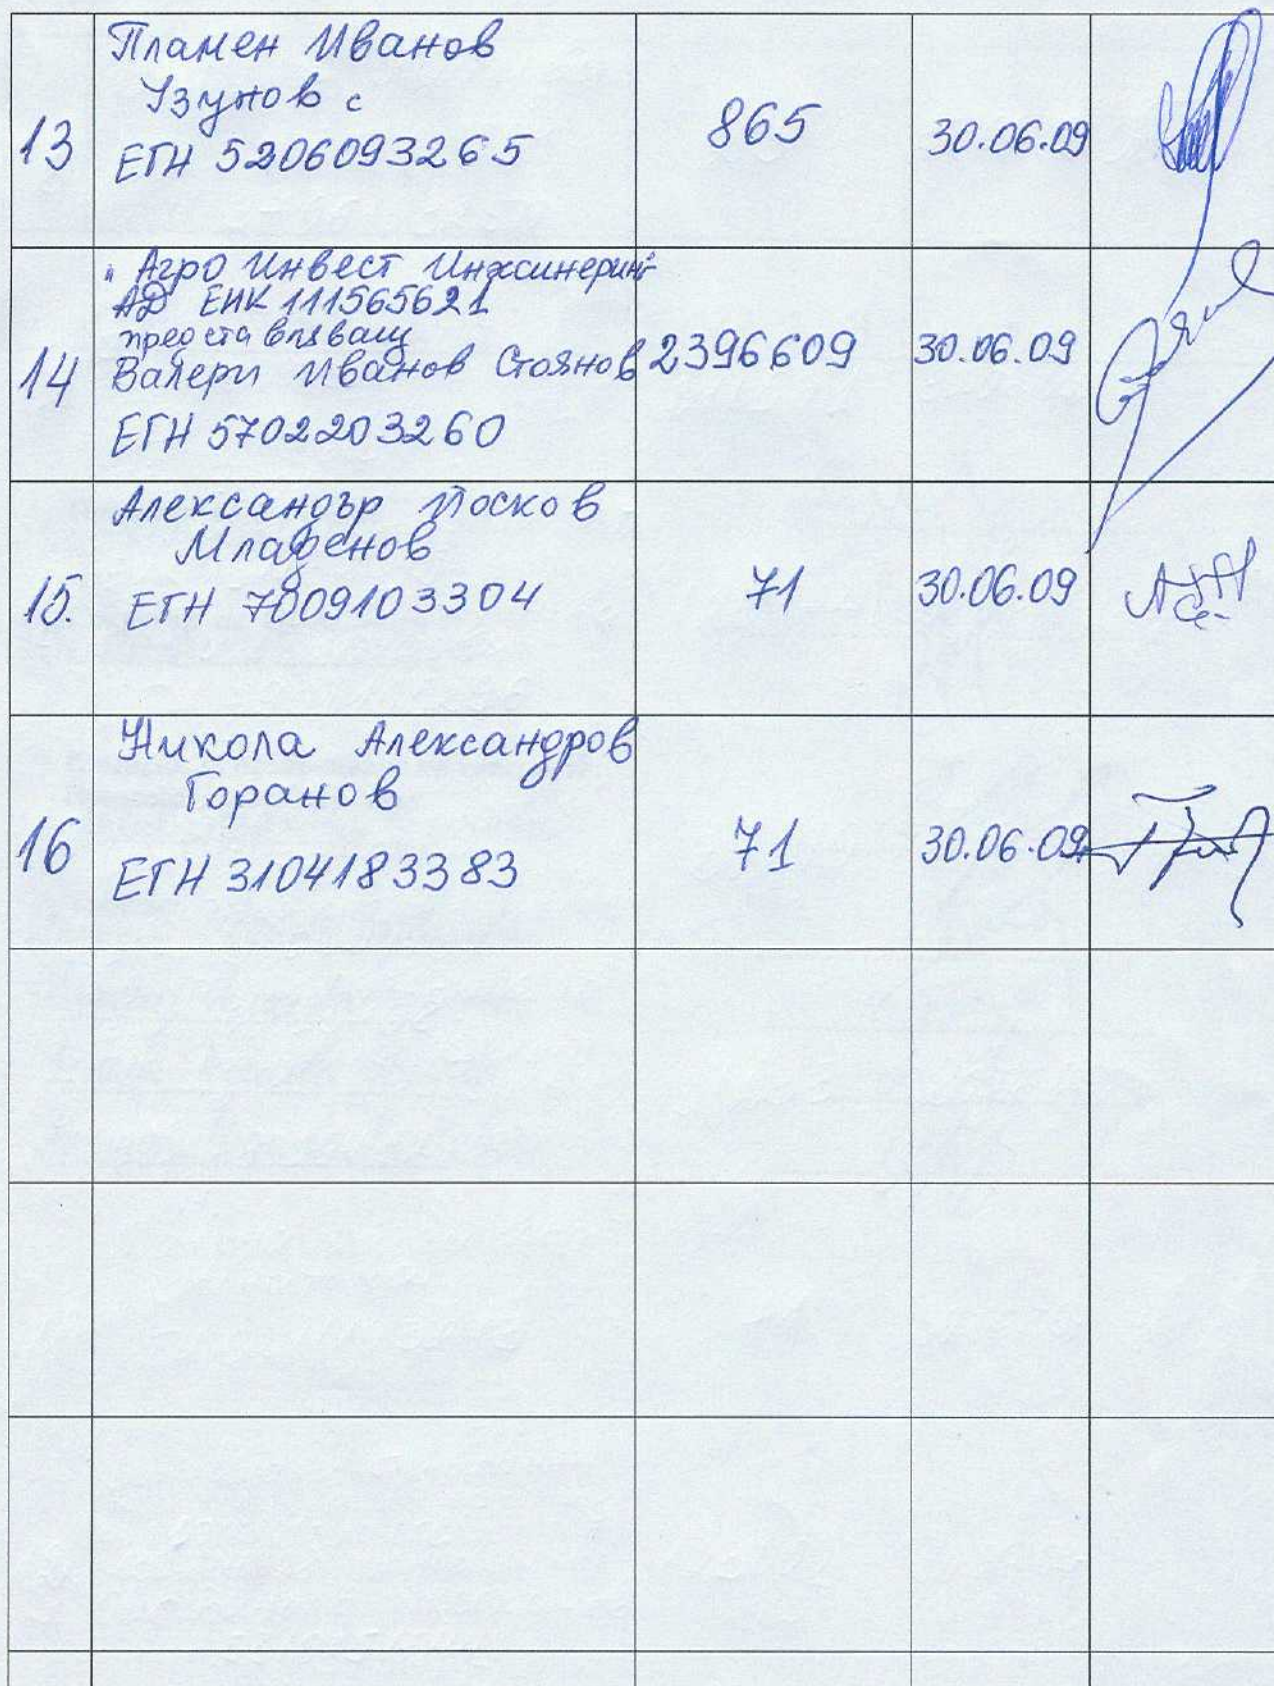 Пламен Иванов
Узунов с
13 ЕГН 5206093265 865 30.06.09
"Агро Инвест Инжинеринг"
АД ЕИК 111565621
представляващ
14 Валери Иванов Стоянов 2396609 30.06.09
ЕГН 5702203260
Александър Тосков
Младенов
15. ЕГН 7009103304 71 30.06.09
Никола Александров
Горанов
16 ЕГН 3104183383 71 30.06.09